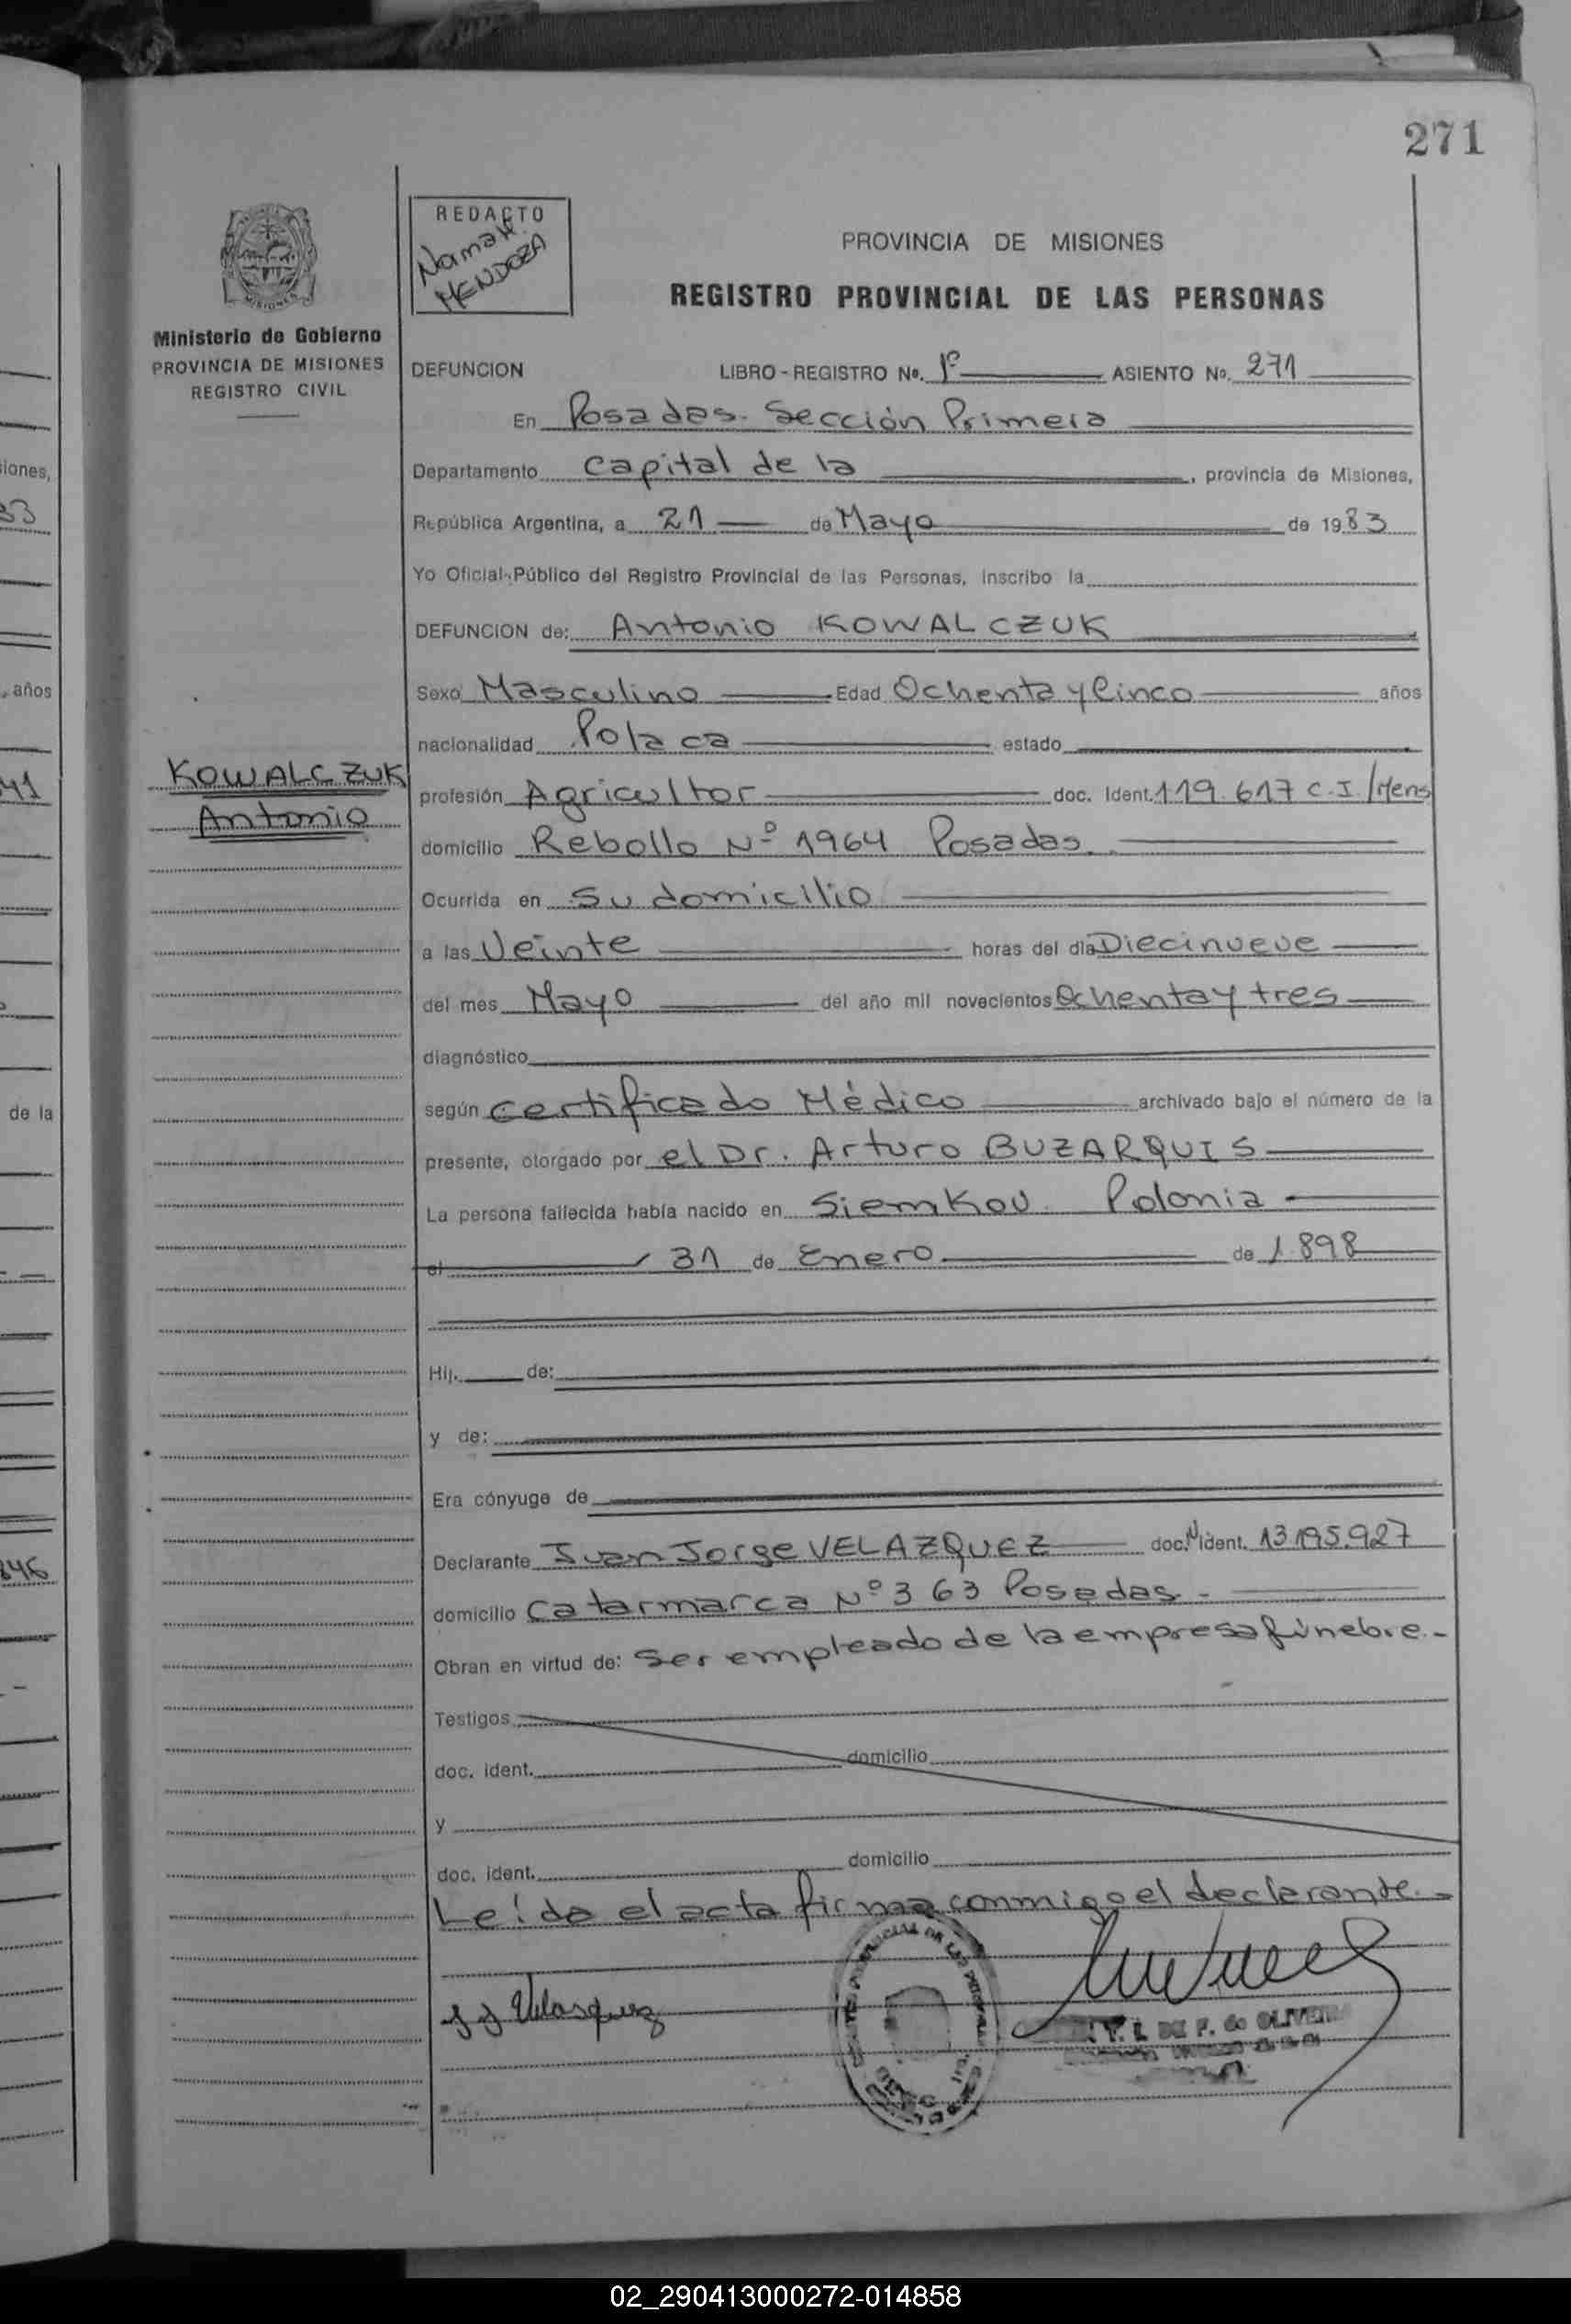 271
REDACTO
MENDOZA
PROVINCIA DE MISIONES
REGISTRO PROVINCIAL DE LAS PERSONAS
Ministerio de Gobierno
PROVINCIA DE MISIONES
REGISTRO CIVIL
DEFUNCION LIBRO - REGISTRO No. 1º ASIENTO No. 271
En Posadas. Sección Primera
Departamento Capital de la , provincia de Misiones,
República Argentina, a 21 de Mayo de 1983
Yo Oficial Público del Registro Provincial de las Personas, inscribo la
DEFUNCION de: Antonio KOWALCZUK
Sexo Masculino Edad Ochenta y Cinco años
nacionalidad Polaca estado
KOWALCZUK
Antonio
profesión Agricultor doc. Ident. 119.617 C.I/Mens
domicilio Rebollo Nº 1964 Posadas.
Ocurrida en su domicilio
a las Veinte horas del día Diecinueve
del mes Mayo del año mil novecientos Ochenta y tres
diagnóstico
según Certificado Médico archivado bajo el número de la
presente, otorgado por el Dr. Arturo BUZARQUIS
La persona fallecida había nacido en Siemkov. Polonia
el 31 de Enero de 1.898
Hij. de:
y de:
Era cónyuge de
Declarante Juan Jorge VELAZQUEZ doc. N ident. 13.195.927
domicilio Catarmarca Nº 363 Posadas -
Obran en virtud de: Ser empleado de la empresa fúnebre.-
Testigos
doc. ident. domicilio
y
doc. ident. domicilio
Leída el acta firma conmigo el declarante.-
J J Velasquez
de OLIVEIRA
iones,
33
años
41
de la
846
02_290413000272-014858